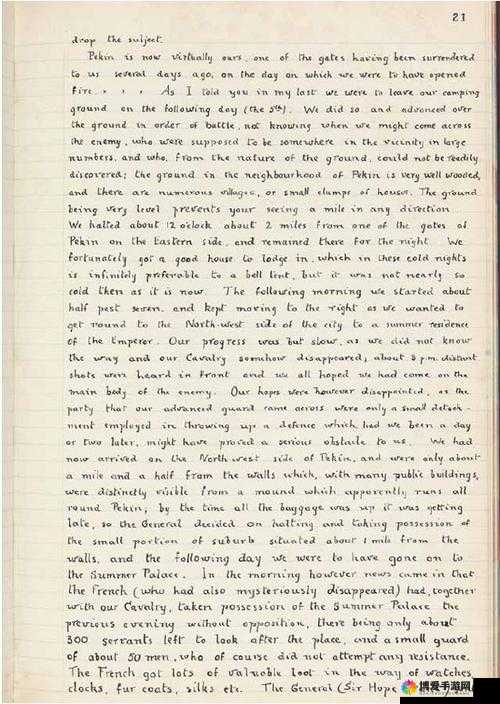 21
drop the subject.
Pekin is now virtually ours, one of the gates having been surrendered
to us several days ago, on the day on which we were to have opened
fire. . . . As I told you in my last we were to leave our camping
ground on the following day (the 5th). We did so and advanced over
the ground in order of battle, not knowing when we might come across
the enemy, who were supposed to be somewhere in the vicinity in large
numbers, and who, from the nature of the ground, could not be readily
discovered; the ground in the neighbourhood of Pekin is very well wooded,
and there are numerous villages, or small clumps of houses. The ground
being very level prevents your seeing a mile in any direction.
We halted about 12 o'clock about 2 miles from one of the gates of
Pekin on the Eastern side, and remained there for the night. We
fortunately got a good house to lodge in, which in these cold nights
is infinitely preferable to a bell tent, but it was not nearly so
cold then as it is now. The following morning we started about
half past seven, and kept moving to the right as we wanted to
get round to the North-West side of the city to a summer residence
of the Emperor. Our progress was but slow, as we did not know
the way and our Cavalry somehow disappeared; about 3 p.m. distant
shots were heard in front and we all hoped we had come on the
main body of the enemy. Our hopes were however disappointed, as the
party that our advanced guard came across were only a small detach-
ment employed in throwing up a defence which had we been a day
or two later, might have proved a serious obstacle to us. We had
now arrived on the North West side of Pekin, and were only about
a mile and a half from the walls which, with many public buildings,
were distinctly visible from a mound which apparently runs all
round Pekin; by the time all the baggage was up it was getting
late, so the General decided on halting and taking possession of
the small portion of suburb situated about 1 mile from the
walls, and the following day we were to have gone on to
the Summer Palace. In the morning however news came in that
the French (who had also mysteriously disappeared) had, together
with our Cavalry, taken possession of the Summer Palace the
previous evening without opposition, there being only about
300 servants left to look after the place, and a small guard
of about 50 men, who of course did not attempt any resistance.
The French got lots of valuable loot in the way of watches,
clocks, fur coats, silks etc. The General (Sir Hope
博爱手游网